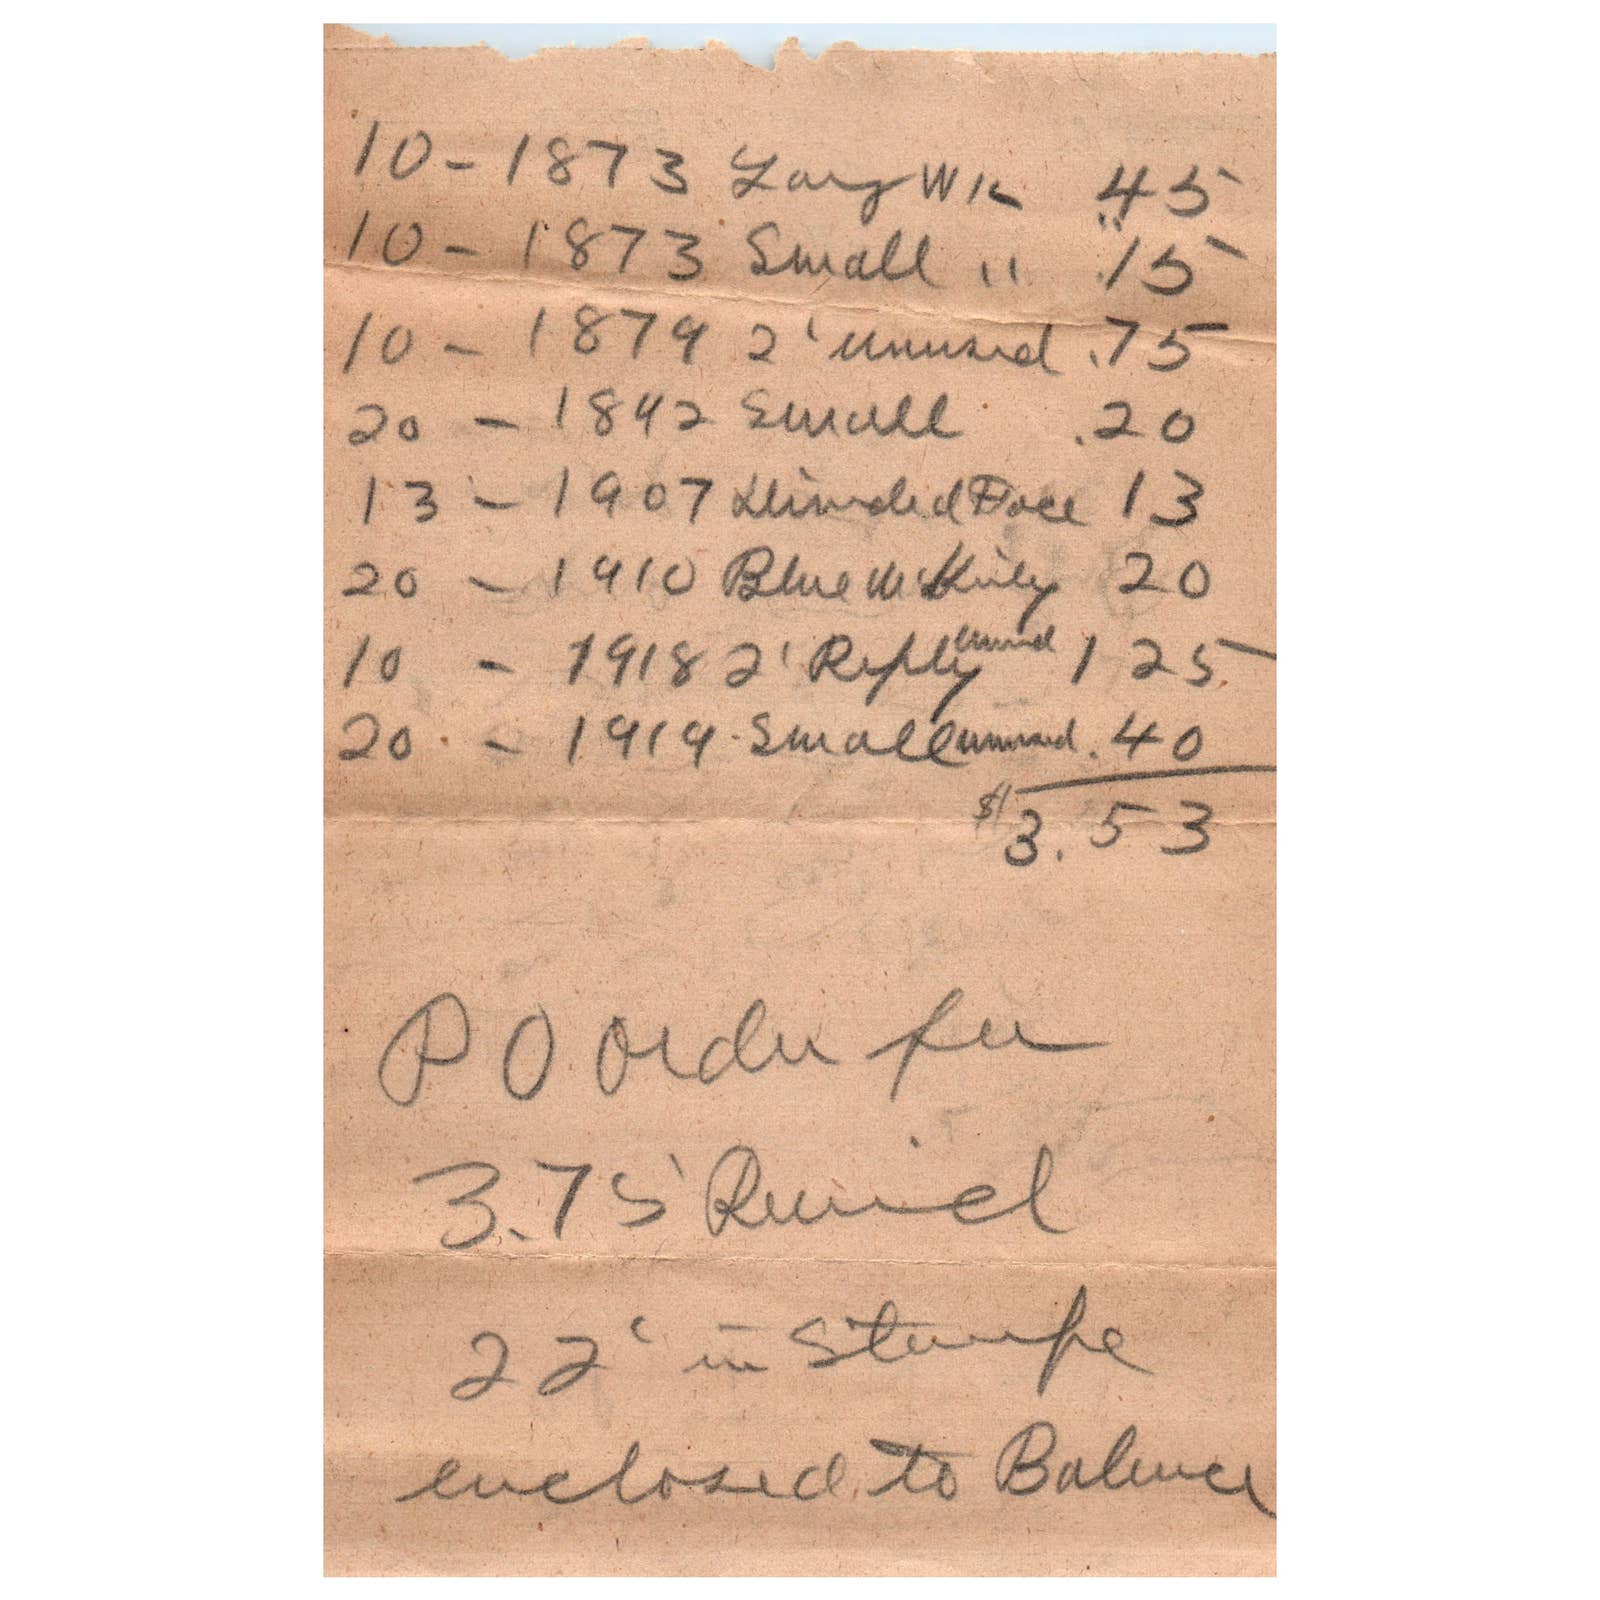 10 - 1873 Larg WK .45
10 - 1873 Small " .15
10 - 1879 2' unused .75
20 - 1892 Small .20
13 - 1907 Face 13
20 - 1910 Blue McKinly 20
10 - 1918 2' Reply unused 1 25
20 - 1919 Small unused .40
$3.53
P O Order for
3.75 Received
22' in Stamps
enclosed to Balance